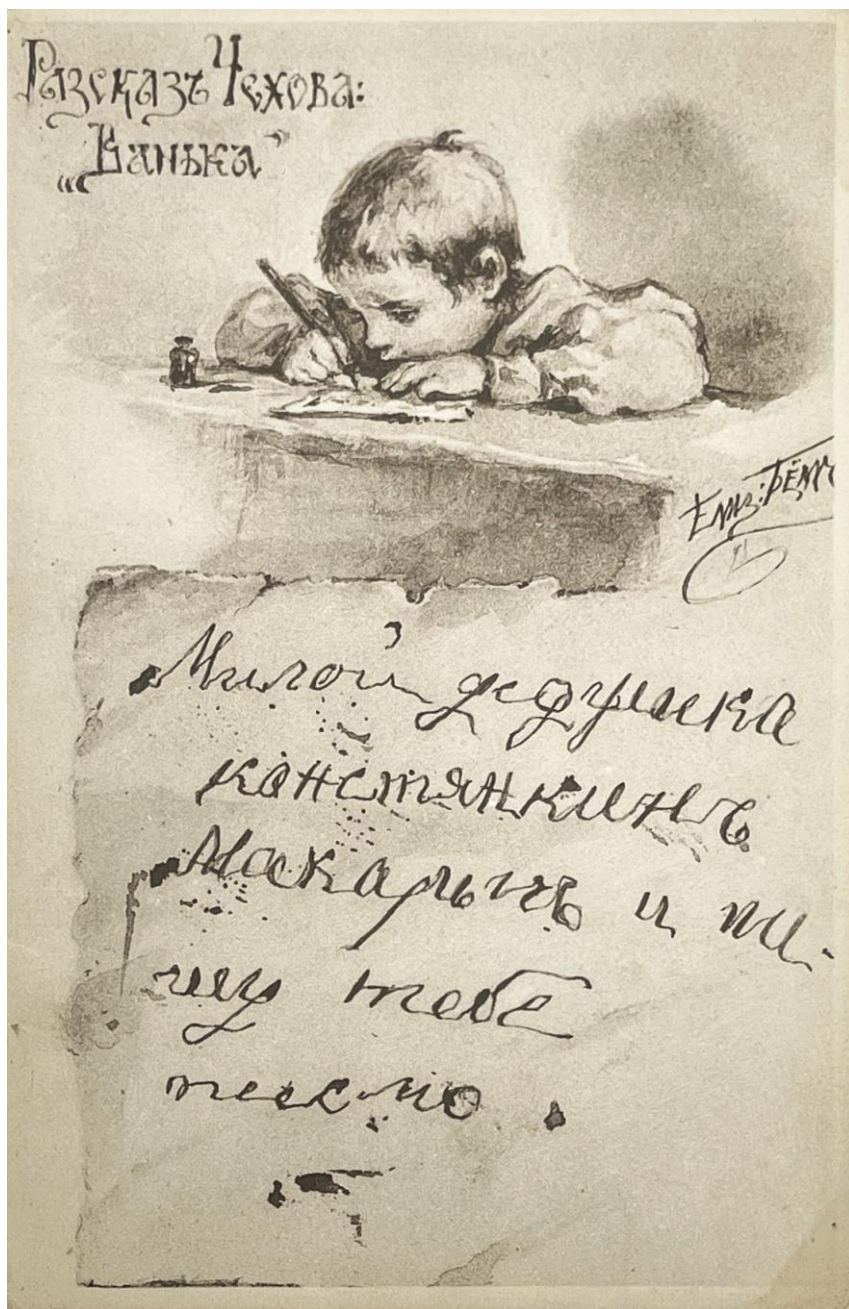 Разсказъ Чехова:
„Ванька”
Елиз: Бёмъ
Милой дедушка
констянкинъ
Макарычъ и пи-
шу тебе
писмо.